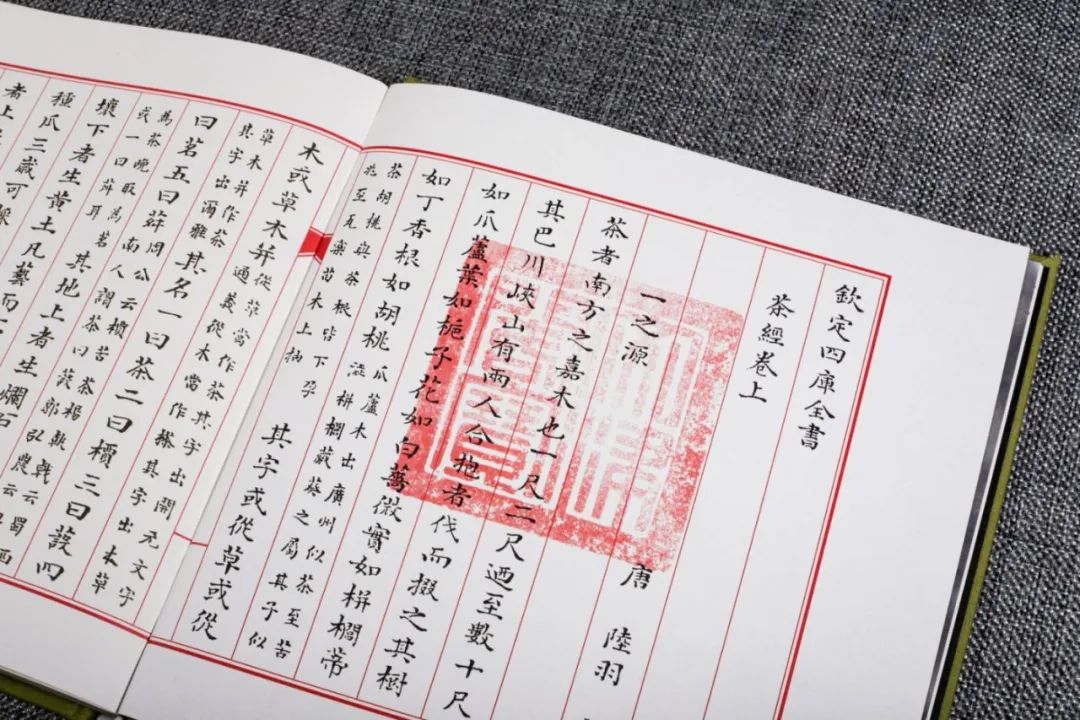 欽定四庫全書
茶經卷上
唐 陸羽
一之源
茶者南方之嘉木也一尺二尺迺至數十尺
其巴川峽山有兩人合抱者伐而掇之其樹
如瓜蘆葉如梔子花如白薔薇實如栟櫚蒂
如丁香根如胡桃瓜蘆木出廣州似茶至苦澁栟櫚蒲葵之屬其子似
茶胡桃與茶根皆下孕兆至瓦礫苗木上抽其字或從草或從
木或草木并從草當作茶其字出開元文字音義從木當作搽其字出本草
草木并作茶其字出爾雅其名一曰茶二曰檟三曰蔎四
曰茗五曰荈周公云檟苦茶楊執戟云蜀西南人謂茶曰蔎郭弘農云
為茶晚取為茗或一曰荈耳其地上者生爛石
壤下者生黃土凡藝而
種瓜三歲可採
者上